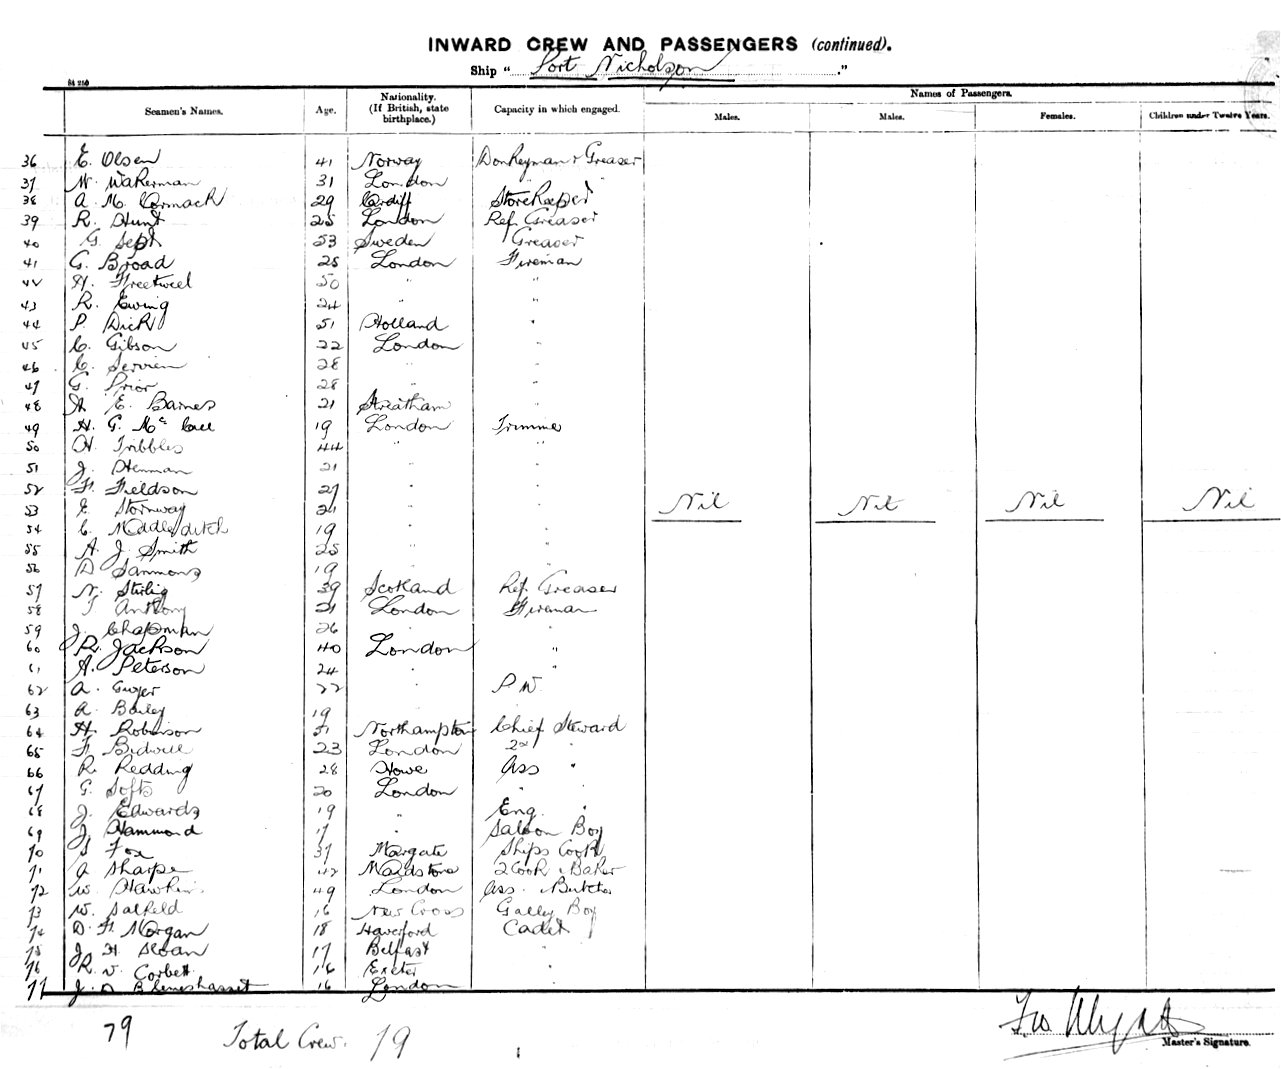 INWARD CREW AND PASSENGERS (continued).
Ship "Port Nicholson"
Seamen's Names. Age. Nationality. (If British, state birthplace.) Capacity in which engaged. Names of Passengers.
Males. Males. Females. Children under Twelve Years.
36 E. Olsen 41 Norway Donkeyman & Greaser
37 W. Wakerman 31 London "
38 A. McCormack 29 Cardiff Storekeeper
39 R. Hunt 25 London Ref. Greaser
40 G. Sept 53 Sweden Greaser
41 G. Broad 25 London Fireman
42 H. Freetwell 50 " "
43 R. Ewing 24 " "
44 P. Dick 51 Holland "
45 C. Gibson 22 London "
46 C. 28 " "
47 G. Prior 28 " "
48 E. Barnes 21 Streatham "
49 H. G. McCall 19 London Trimmer
50 H. Tribbles 44 " "
51 J. Henman 21 " "
52 F. Fieldson 27 " "
53 Stornway 21 " " Nil Nil Nil Nil
54 C. Middleditch 19 " "
55 A. J. Smith 25 " "
56 D. Sammons 19 " "
57 N. Stirling 39 Scotland Ref. Greaser
58 T Anthony 21 London Fireman
59 J. Chapman 26 " "
60 R. Jackson 40 London "
61 A. Peterson 24 " "
62 A. 22 " P W
63 A. Bailey 19
64 H. Robinson 51 Northampton Chief Steward
65 F. Bidwell 23 London 2nd "
66 R. Redding 28 Howe Ass "
67 G. Softs 20 London " "
68 J. Edwards 19 " Eng. "
69 J. Hammond 17 " Saloon Boy
70 S Fox 37 Margate Ships Cook
71 A Sharpe 42 Maidstone 2 Cook & Baker
72 W. Hawkins 49 London Ass. Butcher
73 W. Salfield 16 New Cross Galley Boy
74 D. F. Morgan 18 Haverford Cadet
75 J. H. Sloan 17 Belfast "
76 R. V. Corbett 16 Exeter "
77 J. D. Blenerhasset 16 London
79 Total Crew. 79
Master's Signature.